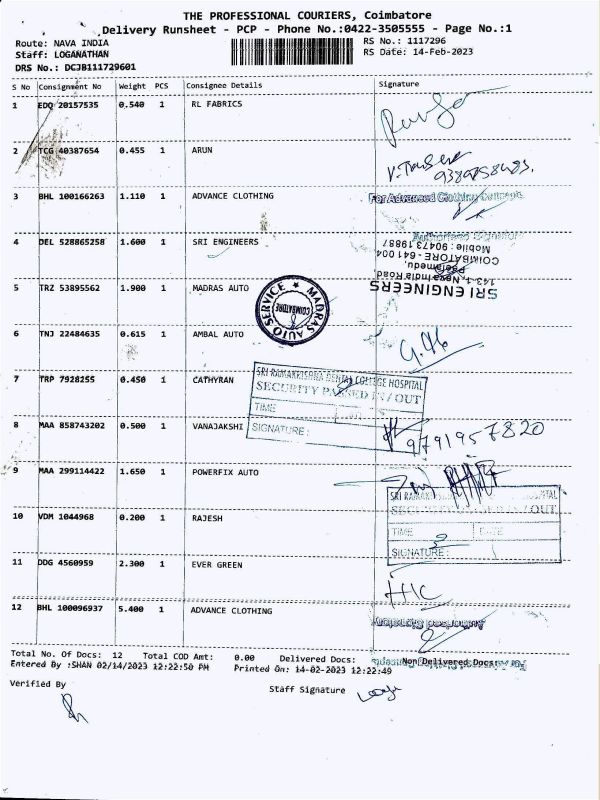 THE PROFESSIONAL COURIERS, Coimbatore
Delivery Runsheet - PCP - Phone No.:0422-3505555 - Page No.:1
Route: NAVA INDIA
RS No.: 1117296
Staff: LOGANATHAN
RS Date: 14-Feb-2023
DRS No.: DCJB111729601
S No Consignment No Weight PCS Consignee Details Signature
1 EDQ 20157535 0.540 1 RL FABRICS
2 TCG 40387654 0.455 1 ARUN
3 BHL 100166263 1.110 1 ADVANCE CLOTHING
For Advanced Clothing Concepts
Authorised Signatory
4 DEL 528865258 1.600 1 SRI ENGINEERS
SRI ENGINEERS
143-1, Nava India Road
Peelamedu,
COIMBATORE - 641 004
Mobile: 90473 19887
5 TRZ 53895562 1.900 1 MADRAS AUTO
MADRAS AUTO SERVICE
COIMBATORE
6 TNJ 22484635 0.615 1 AMBAL AUTO
7 TRP 7928255 0.450 1 CATHYRAN
SRI RAMAKRISHNA DENTAL COLLEGE HOSPITAL
SECURITY PASSED IN / OUT
TIME
SIGNATURE:
8 MAA 858743202 0.500 1 VANAJAKSHI
9791957820
9 MAA 299114422 1.650 1 POWERFIX AUTO
10 VDM 1044968 0.200 1 RAJESH
TIME DATE
SIGNATURE:
11 DDG 4560959 2.300 1 EVER GREEN
12 BHL 100096937 5.400 1 ADVANCE CLOTHING
Authorised Signatory
Total No. Of Docs: 12 Total COD Amt: 0.00 Delivered Docs: Non Delivered Docs:
Entered By :SHAN 02/14/2023 12:22:50 PM Printed On: 14-02-2023 12:22:49
Verified By
Staff Signature